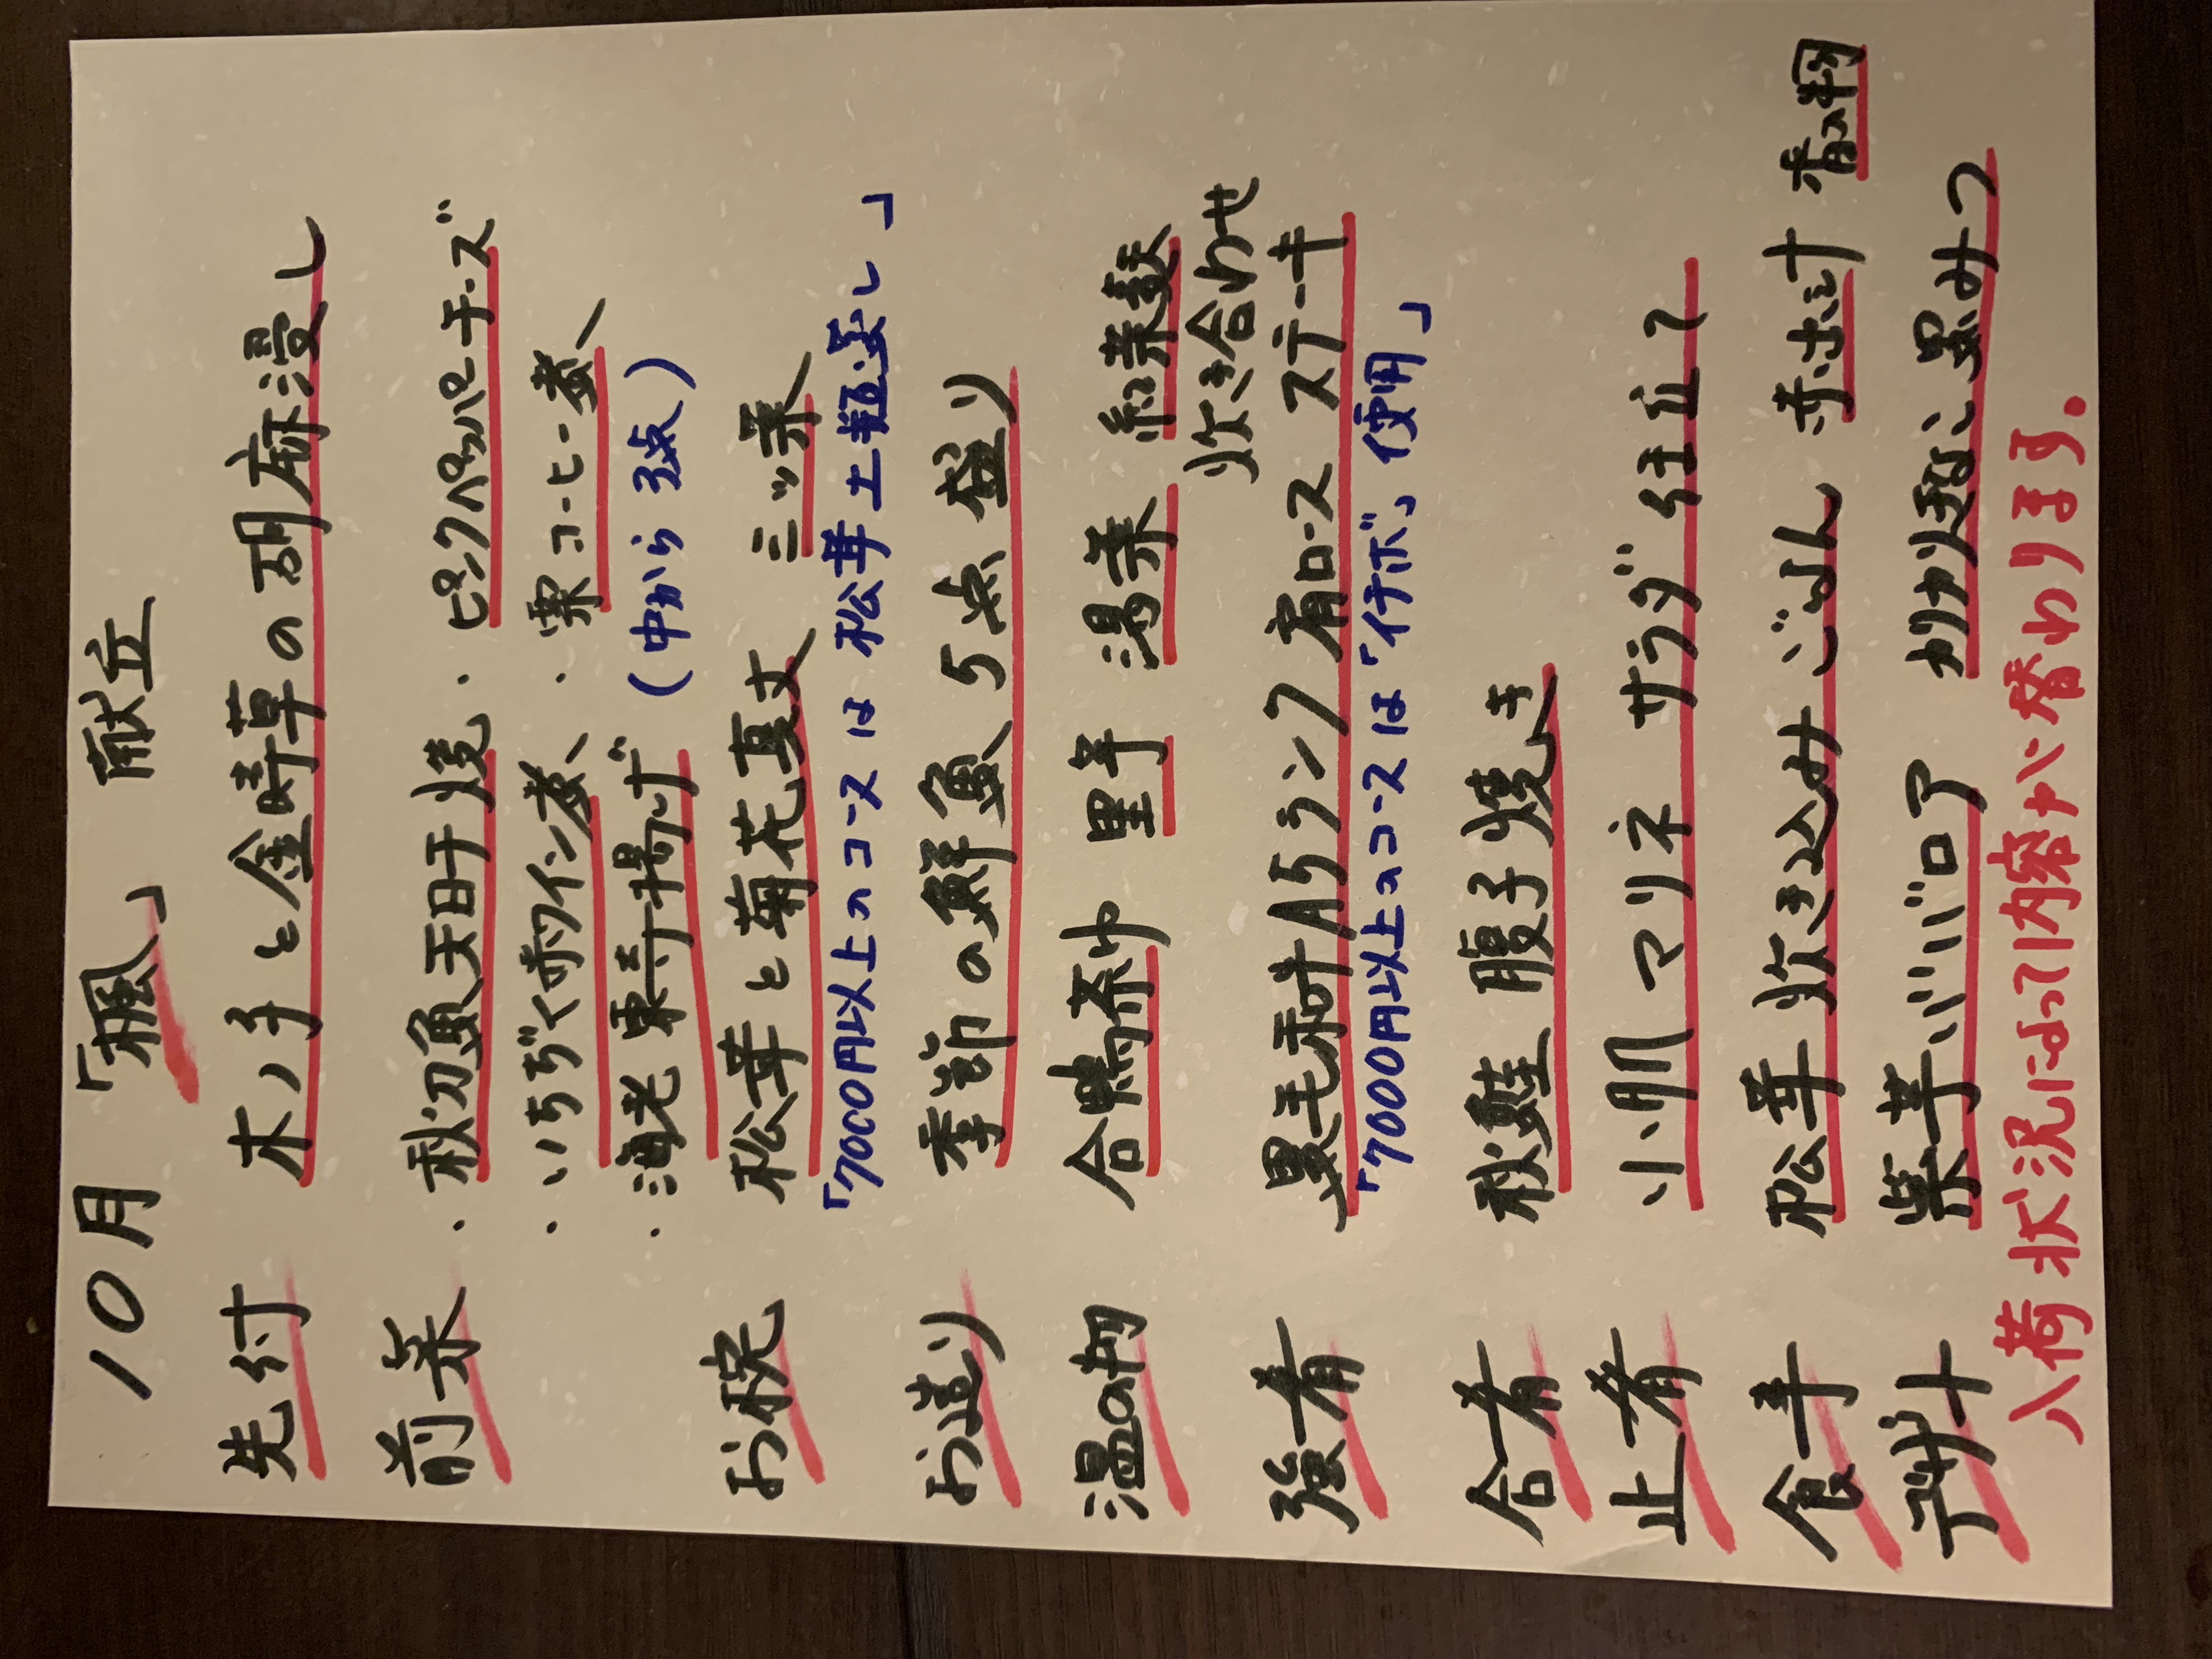 10月 「楓」 献立
先付 木ノ子と金時草の胡麻浸し
前菜 ・秋刀魚天日干焼 ・ピンクペッパーチーズ
・いちぢく赤ワイン煮 ・栗コーヒー煮
・海老東寺揚げ (中から3点)
お椀 松茸と菊花真丈 三ッ葉
「7000円以上のコースは松茸土瓶蒸し」
お造り 季節の鮮魚5点盛り
温の物 合鴨茶巾 里芋 湯葉 紅葉麸
炊き合わせ
強肴 黒毛和牛A5ランク肩ロースステーキ
「7000円以上のコースは「イチボ」使用」
合肴 秋鮭腹子焼き
止肴 小肌マリネ サラダ仕立て
食事 松茸炊き込みごはん 赤出汁 香の物
デザート 紫芋ババロア カリカリきなこ 黒みつ
入荷状況によって内容が替わります。